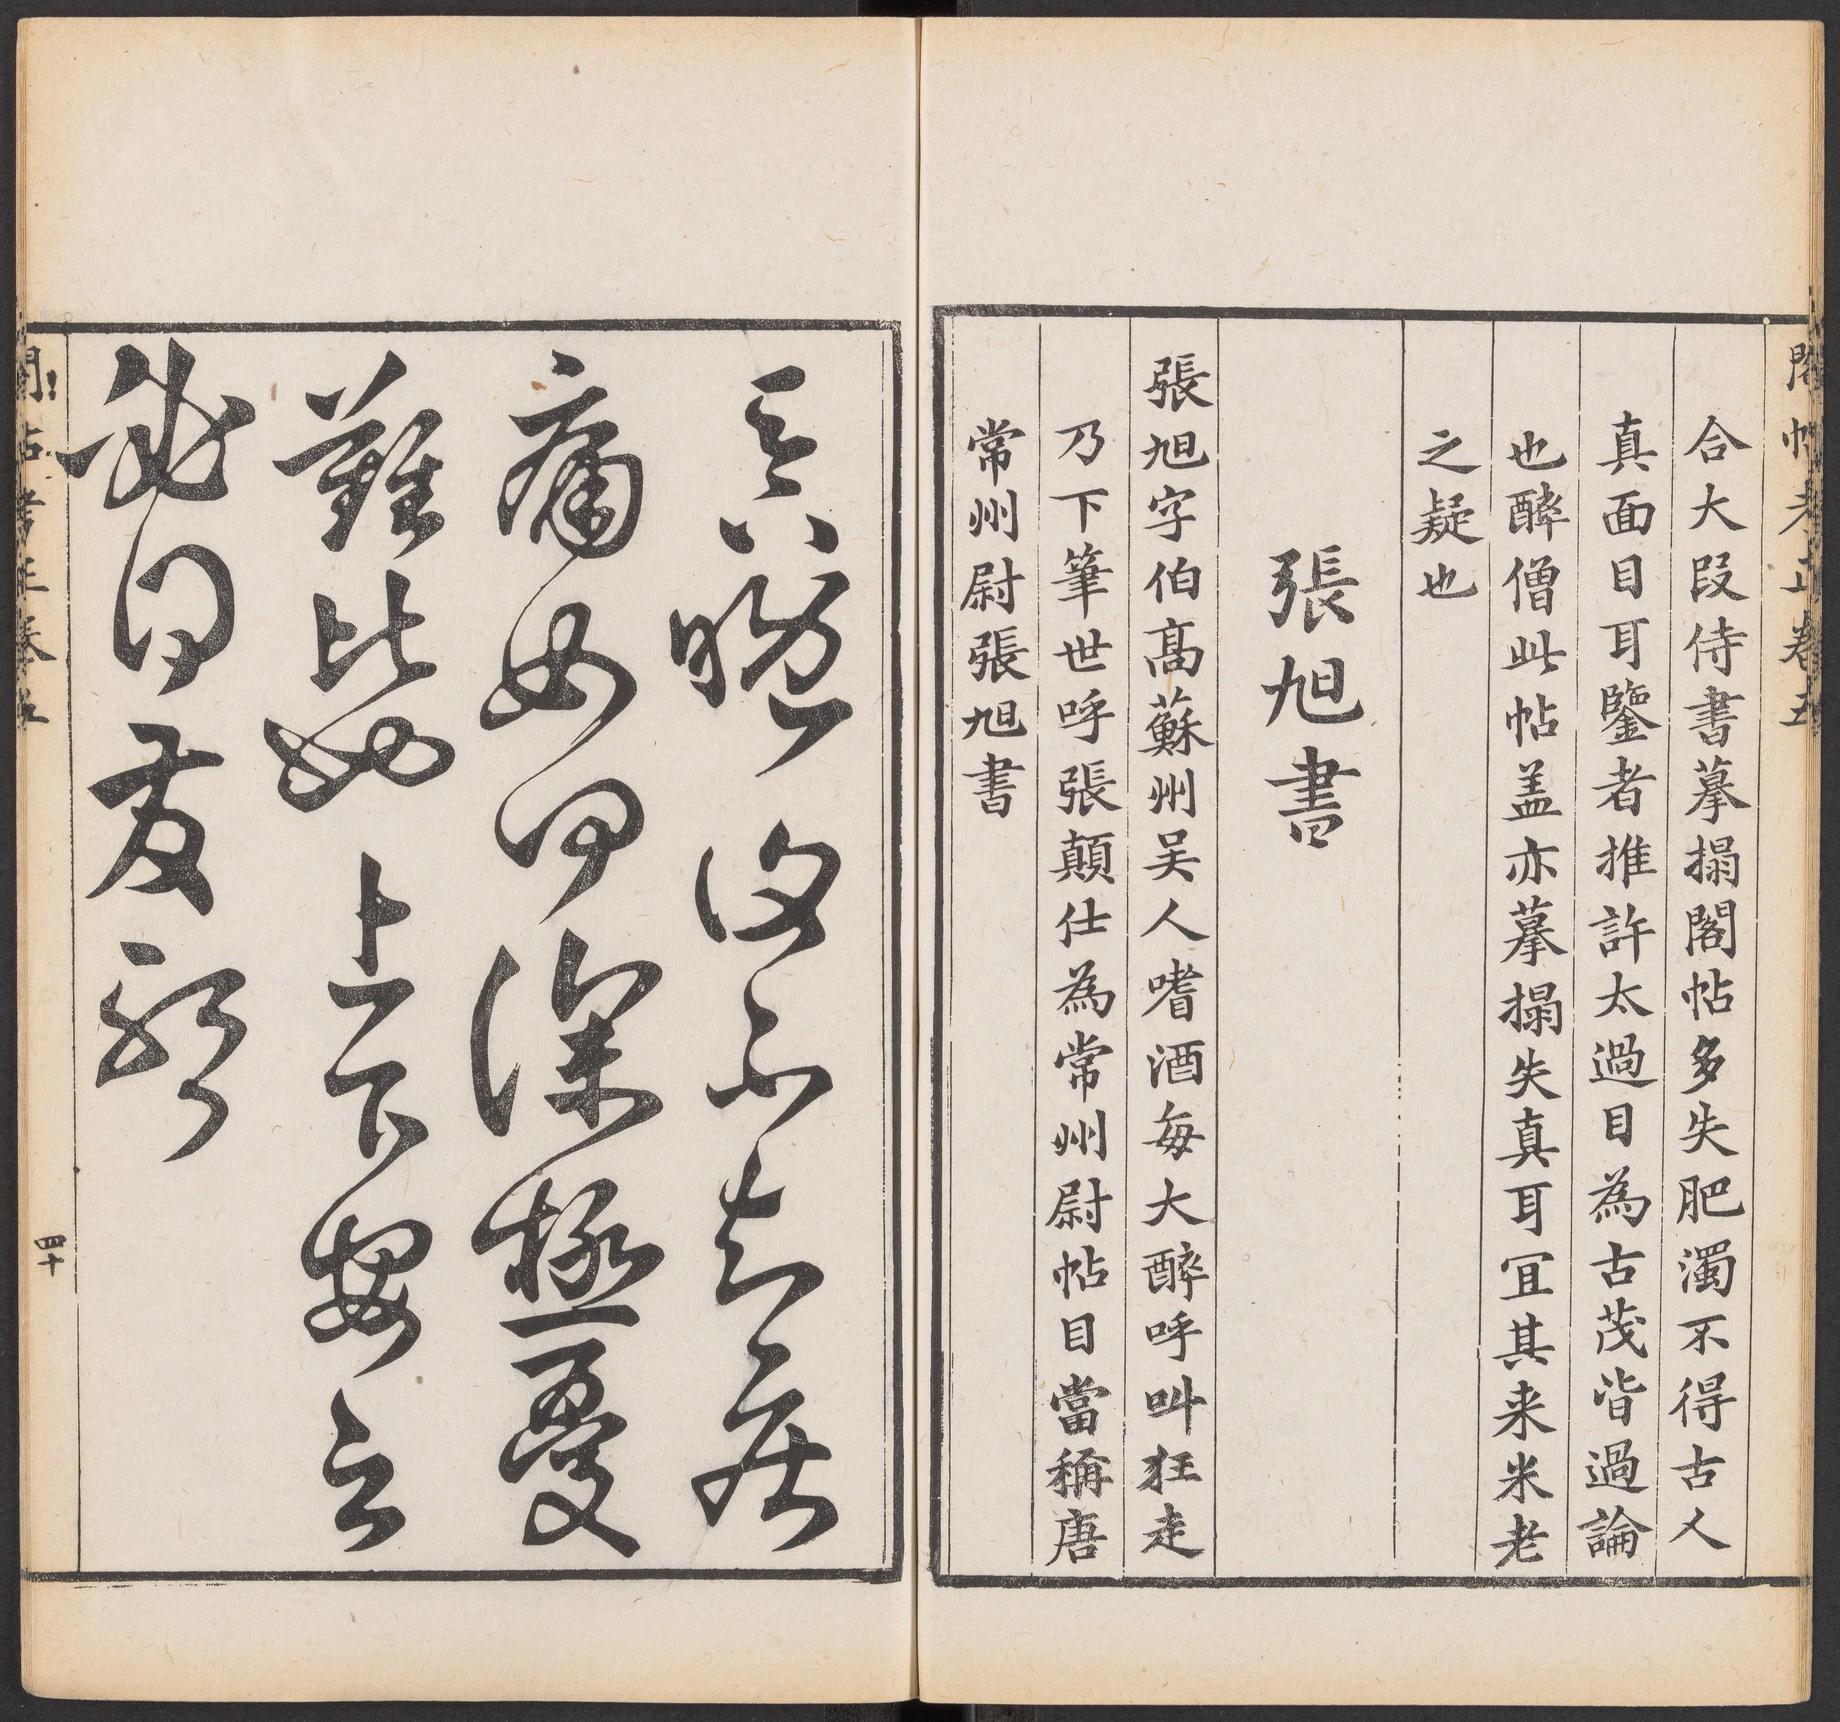 閣帖考正卷五
合大段侍書摹搨閣帖多失肥濁不得古人
真面目耳鑒者推許太過目為古茂皆過論
也醉僧此帖盖亦摹搨失真耳冝其来米老
之疑也
張旭書
張旭字伯高蘇州吴人嗜酒每大醉呼叫狂走
乃下筆世呼張顛仕為常州尉帖目當稱唐
常州尉張旭書
晚復不知
痛如何深極憂
難比上下安
何
閣帖考正卷五
四十